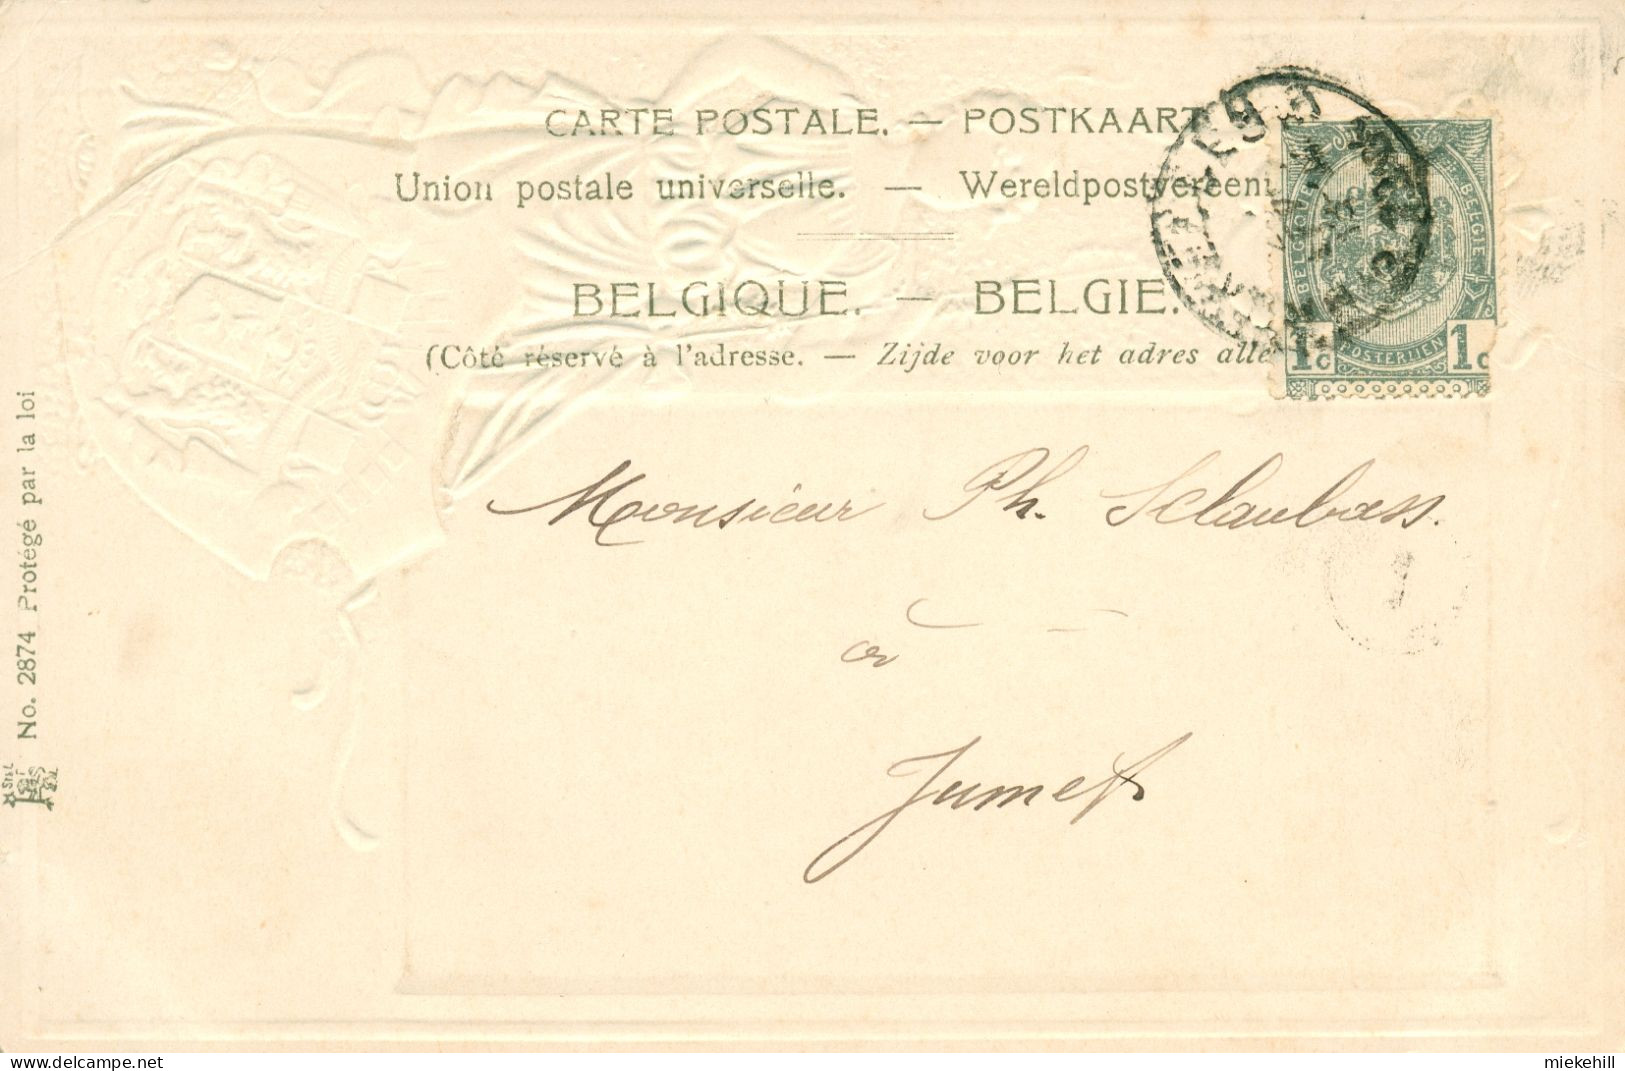 CARTE POSTALE. — POSTKAART
Union postale universelle. — Wereldpostvereeni
BELGIQUE. — BELGIE.
(Côté réservé à l'adresse. — Zijde voor het adres alle
BELGIQUE
BELGIE
POSTERIJEN
1c 1c
Monsieur Ph.
à
Jumet
1
No. 2874 Protégé par la loi
miekehill